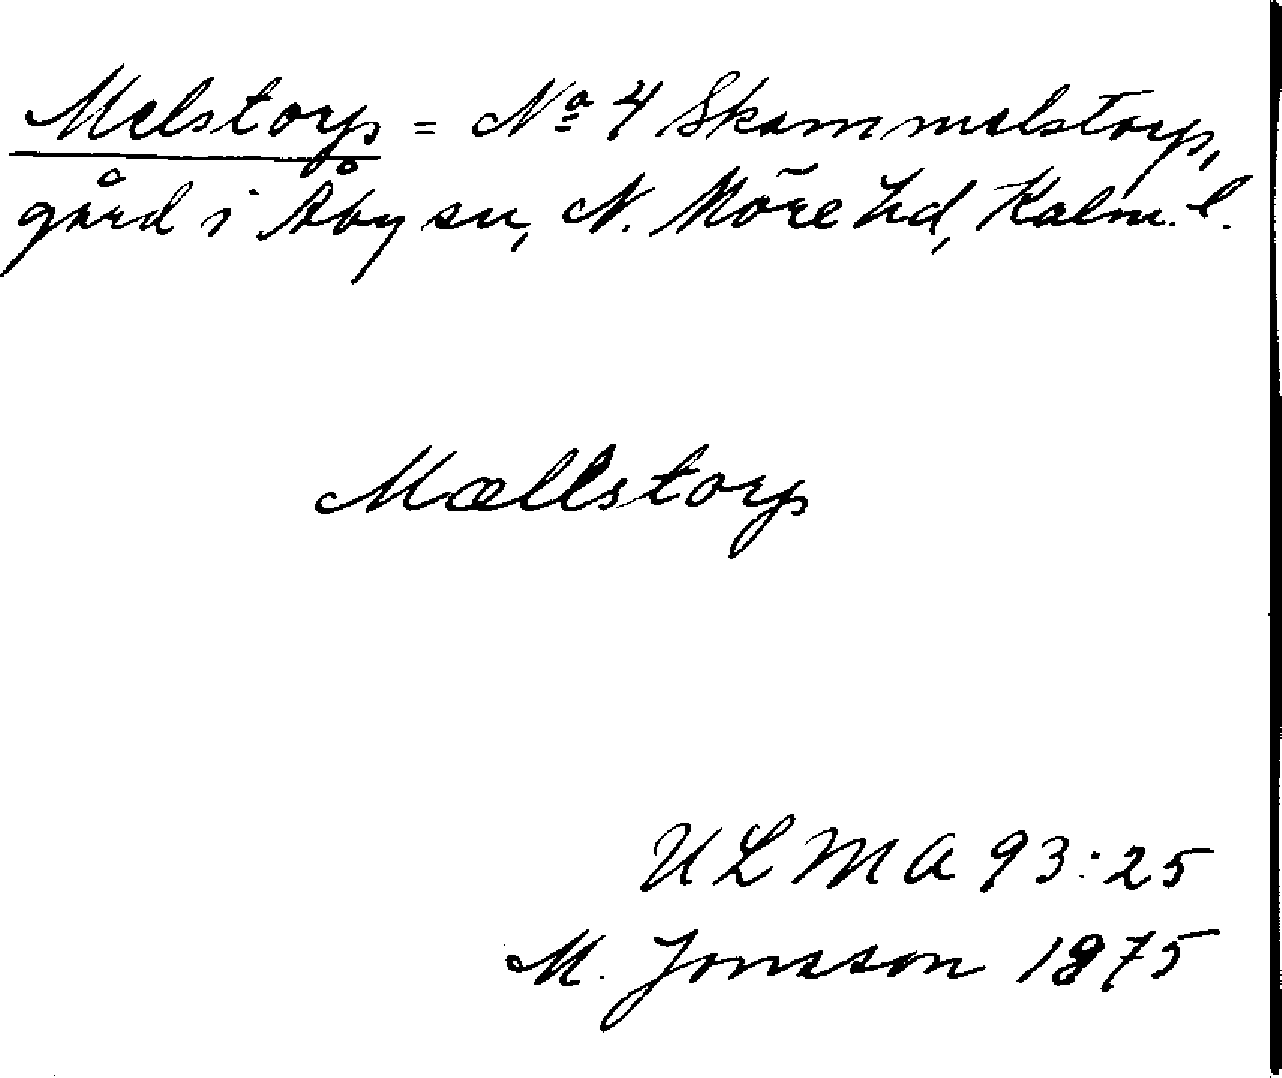 Melstorp = Nº 4 Skammelstorp,
gård i Åby sn, N. Möre hd, Kalm. l.
Mællstorp
ULMA 93:25
M. Jonsson 1875